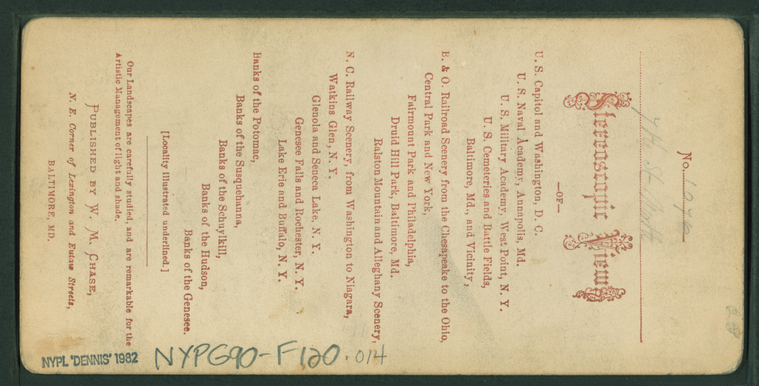 No. 1976
7th St. North
Stereoscopic Views
—OF—
U. S. Capitol and Washington, D. C.
U. S. Naval Academy, Annapolis, Md.
U. S. Military Academy, West Point, N. Y.
U. S. Cemeteries and Battle Fields,
Baltimore, Md., and Vicinity,
B. & O. Railroad Scenery from the Chesapeake to the Ohio,
Central Park and New York,
Fairmount Park and Philadelphia,
Druid Hill Park, Baltimore, Md.
Ralston Mountain and Alleghany Scenery,
N. C. Railway Scenery, from Washington to Niagara,
Watkins Glen, N. Y.
Glenola and Seneca Lake, N. Y.
Genesee Falls and Rochester, N. Y.
Lake Erie and Buffalo, N. Y.
Banks of the Potomac,
Banks of the Susquehanna,
Banks of the Schuylkill,
Banks of the Hudson,
Banks of the Genesee.
[Locality illustrated underlined.]
Our Landscapes are carefully studied, and are remarkable for the
Artistic Management of light and shade.
PUBLISHED BY W. M. CHASE,
N. E. Corner of Lexington and Eutaw Streets,
BALTIMORE, MD.
NYPL "DENNIS" 1982
NYPG90-F120.014